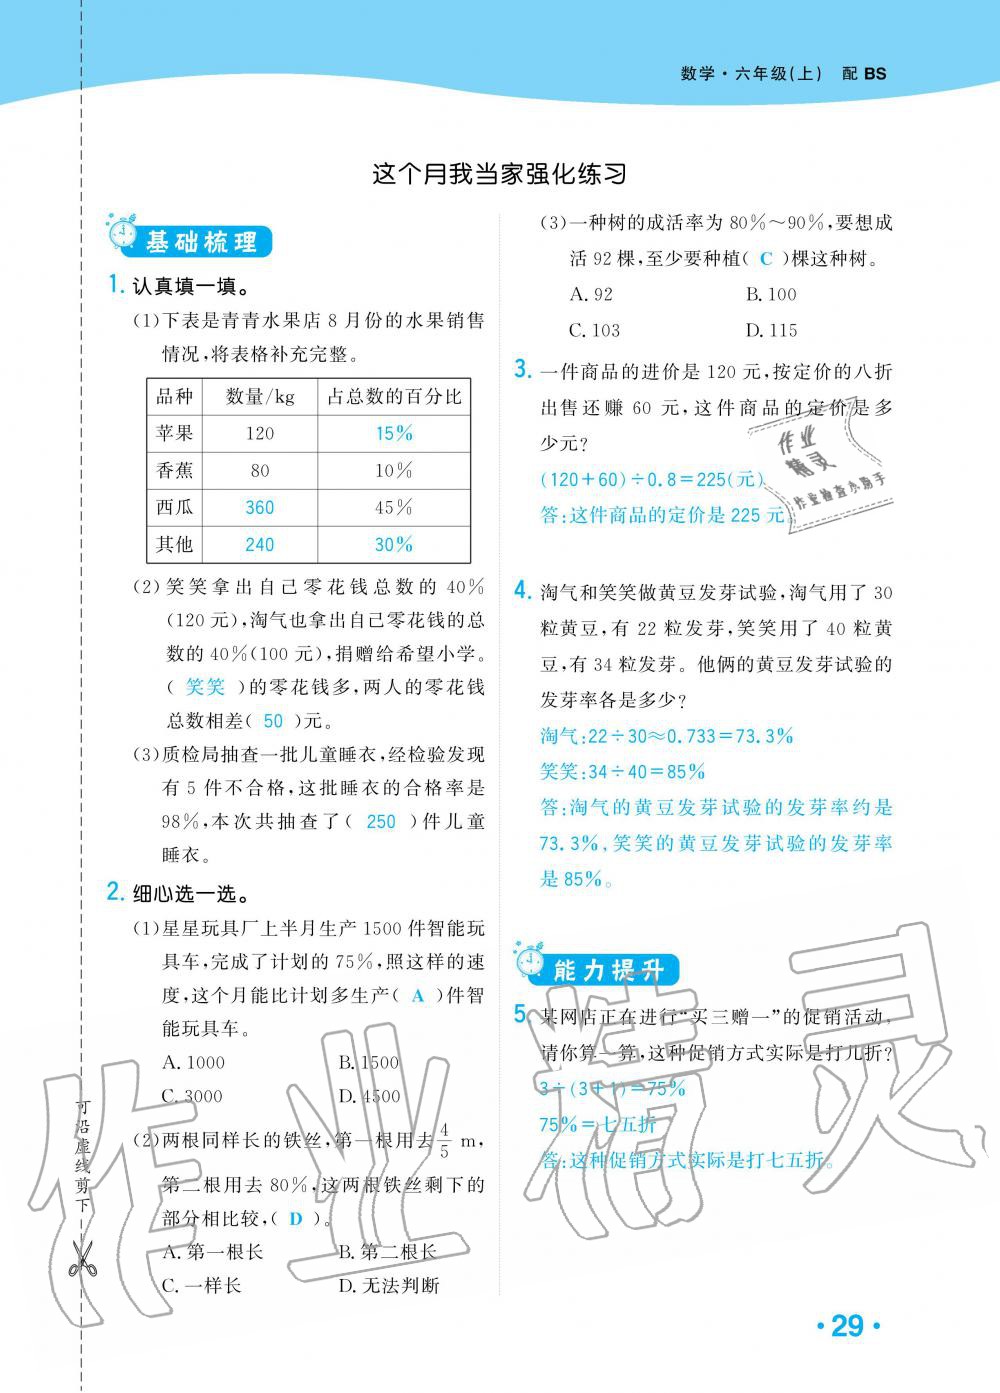 数学·六年级(上) 配 BS
这个月我当家强化练习
基础梳理
1. 认真填一填。
(1)下表是青青水果店 8 月份的水果销售
情况,将表格补充完整。
品种 数量/kg 占总数的百分比
苹果 120 15%
香蕉 80 10%
西瓜 360 45%
其他 240 30%
(2)笑笑拿出自己零花钱总数的 40%
(120 元),淘气也拿出自己零花钱的总
数的 40%(100 元),捐赠给希望小学。
( 笑笑 )的零花钱多,两人的零花钱
总数相差( 50 )元。
(3)质检局抽查一批儿童睡衣,经检验发现
有 5 件不合格,这批睡衣的合格率是
98%,本次共抽查了( 250 )件儿童
睡衣。
2. 细心选一选。
(1)星星玩具厂上半月生产 1500 件智能玩
具车,完成了计划的 75%,照这样的速
度,这个月能比计划多生产( A )件智
能玩具车。
A. 1000 B. 1500
C. 3000 D. 4500
(2)两根同样长的铁丝,第一根用去 4/5 m,
第二根用去 80%,这两根铁丝剩下的
部分相比较,( D )。
A. 第一根长 B. 第二根长
C. 一样长 D. 无法判断
(3)一种树的成活率为 80%～90%,要想成
活 92 棵,至少要种植( C )棵这种树。
A. 92 B. 100
C. 103 D. 115
3. 一件商品的进价是 120 元,按定价的八折
出售还赚 60 元,这件商品的定价是多
少元?
(120+60)÷0.8=225(元)
答:这件商品的定价是 225 元。
4. 淘气和笑笑做黄豆发芽试验,淘气用了 30
粒黄豆,有 22 粒发芽,笑笑用了 40 粒黄
豆,有 34 粒发芽。他俩的黄豆发芽试验的
发芽率各是多少?
淘气:22÷30≈0.733=73.3%
笑笑:34÷40=85%
答:淘气的黄豆发芽试验的发芽率约是
73.3%,笑笑的黄豆发芽试验的发芽率
是 85%。
能力提升
5. 某网店正在进行“买三赠一”的促销活动。
请你算一算,这种促销方式实际是打几折?
3÷(3+1)=75%
75%=七五折
答:这种促销方式实际是打七五折。
可沿虚线剪下
·29·
作业
精灵
作业检查小助手
作业精灵